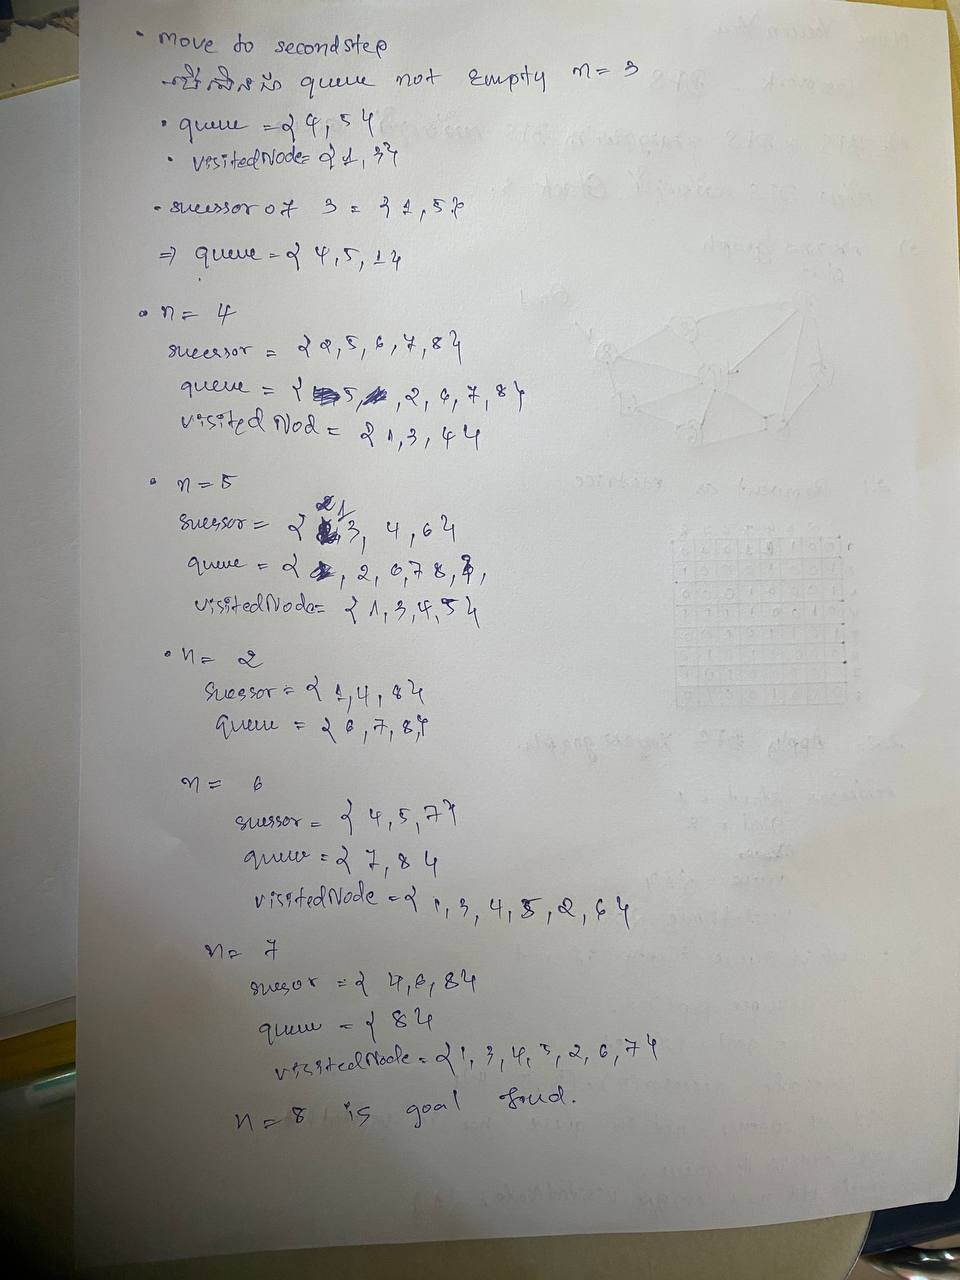 • Move to second step
queue not Empty n = 3
• queue = { 4, 5 }
• visitedNode = { 1, 3 }
• sucessor of 3 = { 1, 5 }
⇒ queue = { 4, 5, 1 }
• n = 4
sucessor = { 2, 5, 6, 7, 8 }
queue = { 5, , 2, 6, 7, 8 }
visited Nod = { 1, 3, 4 }
• n = 5
sucessor = { 1 3, 4, 6 }
queue = { , 2, 6, 7 8,
visitedNode = { 1, 3, 4, 5 }
• n = 2
sucessor = { 1, 4, 8 }
queue = { 6, 7, 8, }
n = 6
sucssor = { 4, 5, 7 }
queue = { 7, 8 }
visitedNode = { 1, 3, 4, 5, 2, 6 }
n = 7
sucsor = { 4, 6, 8 }
queue = { 8 }
visitedNode = { 1, 3, 4, 5, 2, 6, 7 }
n = 8 is goal foud.